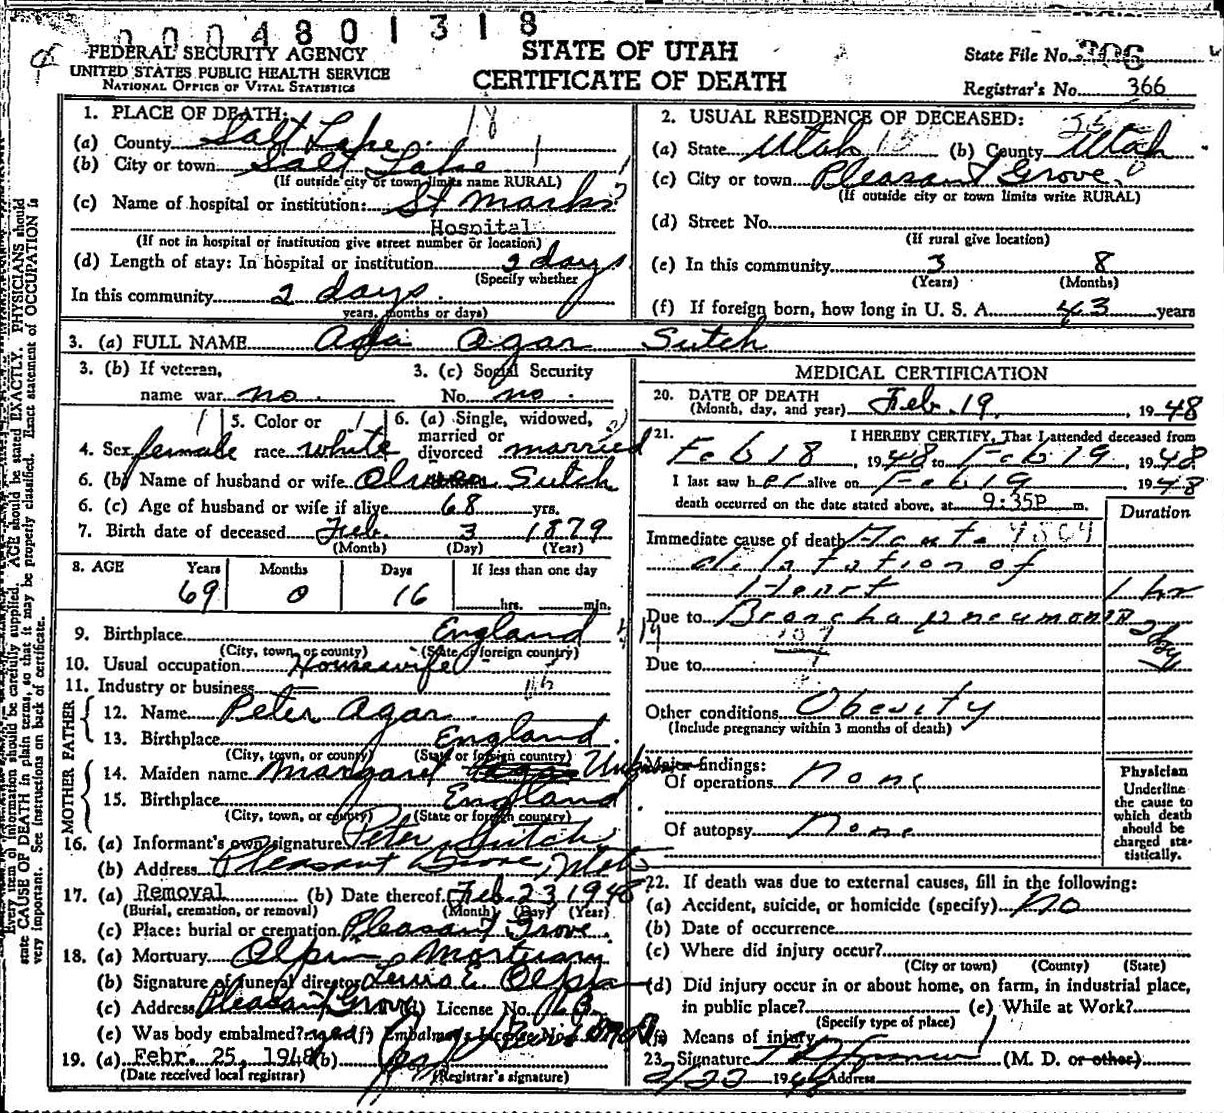 0004801318
FEDERAL SECURITY AGENCY
UNITED STATES PUBLIC HEALTH SERVICE
NATIONAL OFFICE OF VITAL STATISTICS
STATE OF UTAH
CERTIFICATE OF DEATH
State File No.
Registrar's No. 366
1. PLACE OF DEATH: 18
(a) County Salt Lake
(b) City or town Salt Lake
(If outside city or town limits name RURAL)
(c) Name of hospital or institution: St Marks
Hospital
(If not in hospital or institution give street number or location)
(d) Length of stay: In hospital or institution 2 days
(Specify whether
In this community 2 days.
years, months or days)
2. USUAL RESIDENCE OF DECEASED:
(a) State Utah (b) County Utah
(c) City or town Pleasant Grove
(If outside city or town limits write RURAL)
(d) Street No.
(If rural give location)
(e) In this community 3 8
(Years) (Months)
(f) If foreign born, how long in U. S. A. 43 years
3. (a) FULL NAME Ada Agar Sutch
3. (b) If veteran, 3. (c) Social Security
name war no. No. no.
5. Color or 6. (a) Single, widowed,
married or
4. Sex female race white divorced married
6. (b) Name of husband or wife Sutch
6. (c) Age of husband or wife if alive 68 yrs.
7. Birth date of deceased Feb. 3 1879
(Month) (Day) (Year)
8. AGE Years Months Days If less than one day
69 0 16 hrs. min.
9. Birthplace England
(City, town, or county) (State or foreign country)
10. Usual occupation Housewife
11. Industry or business
FATHER
12. Name Peter Agar
13. Birthplace England
(City, town, or county) (State or foreign country)
MOTHER
14. Maiden name Margaret
15. Birthplace England
(City, town, or county) (State or foreign country)
16. (a) Informant's own signature Peter Sutch
(b) Address Pleasant Grove, Utah
17. (a) Removal (b) Date thereof Feb. 23 1948
(Burial, cremation, or removal) (Month) (Day) (Year)
(c) Place: burial or cremation Pleasant Grove.
18. (a) Mortuary Olpin Mortuary
(b) Signature of funeral director Lewis E. Olpin
(c) Address Pleasant Grove (d) License No.
(e) Was body embalmed? (f) Embalmer's License No.
19. (a) Febr. 25, 1948 (b)
(Date received local registrar) (Registrar's signature)
MEDICAL CERTIFICATION
20. DATE OF DEATH
(Month, day, and year) Feb. 19, 1948
21. I HEREBY CERTIFY, That I attended deceased from
Feb 18, 1948 to Feb 19, 1948
I last saw her alive on Feb 19 1948
death occurred on the date stated above, at 9:35P m.
Duration
Immediate cause of death Acute
dilatation of
Heart 1 hr
Due to Broncha pneumonia
Due to
Other conditions Obesity
(Include pregnancy within 3 months of death)
Major findings:
Of operations None
Of autopsy None
Physician
Underline
the cause to
which death
should be
charged sta-
tistically.
22. If death was due to external causes, fill in the following:
(a) Accident, suicide, or homicide (specify) No
(b) Date of occurrence
(c) Where did injury occur?
(City or town) (County) (State)
(d) Did injury occur in or about home, on farm, in industrial place,
in public place? (e) While at Work?
(Specify type of place)
(f) Means of injury
23. Signature (M. D. or other)
2/22 1948 Address
Every item of information should be carefully supplied. AGE should be stated EXACTLY. PHYSICIANS should
state CAUSE OF DEATH in plain terms, so that it may be properly classified. Exact statement of OCCUPATION is
very important. See instructions on back of certificate.